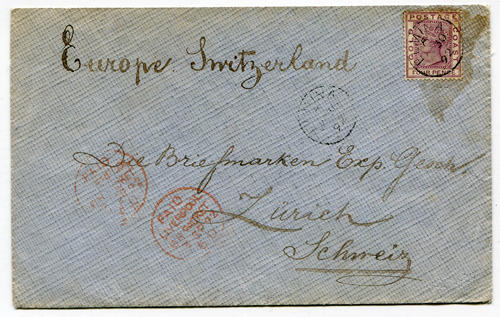 Europe Switzerland
GOLD POSTAGE COAST
FOUR PENCE
Die Briefmarken Exp. Gesch.
PAID
LIVERPOOL
Zürich
Schweiz